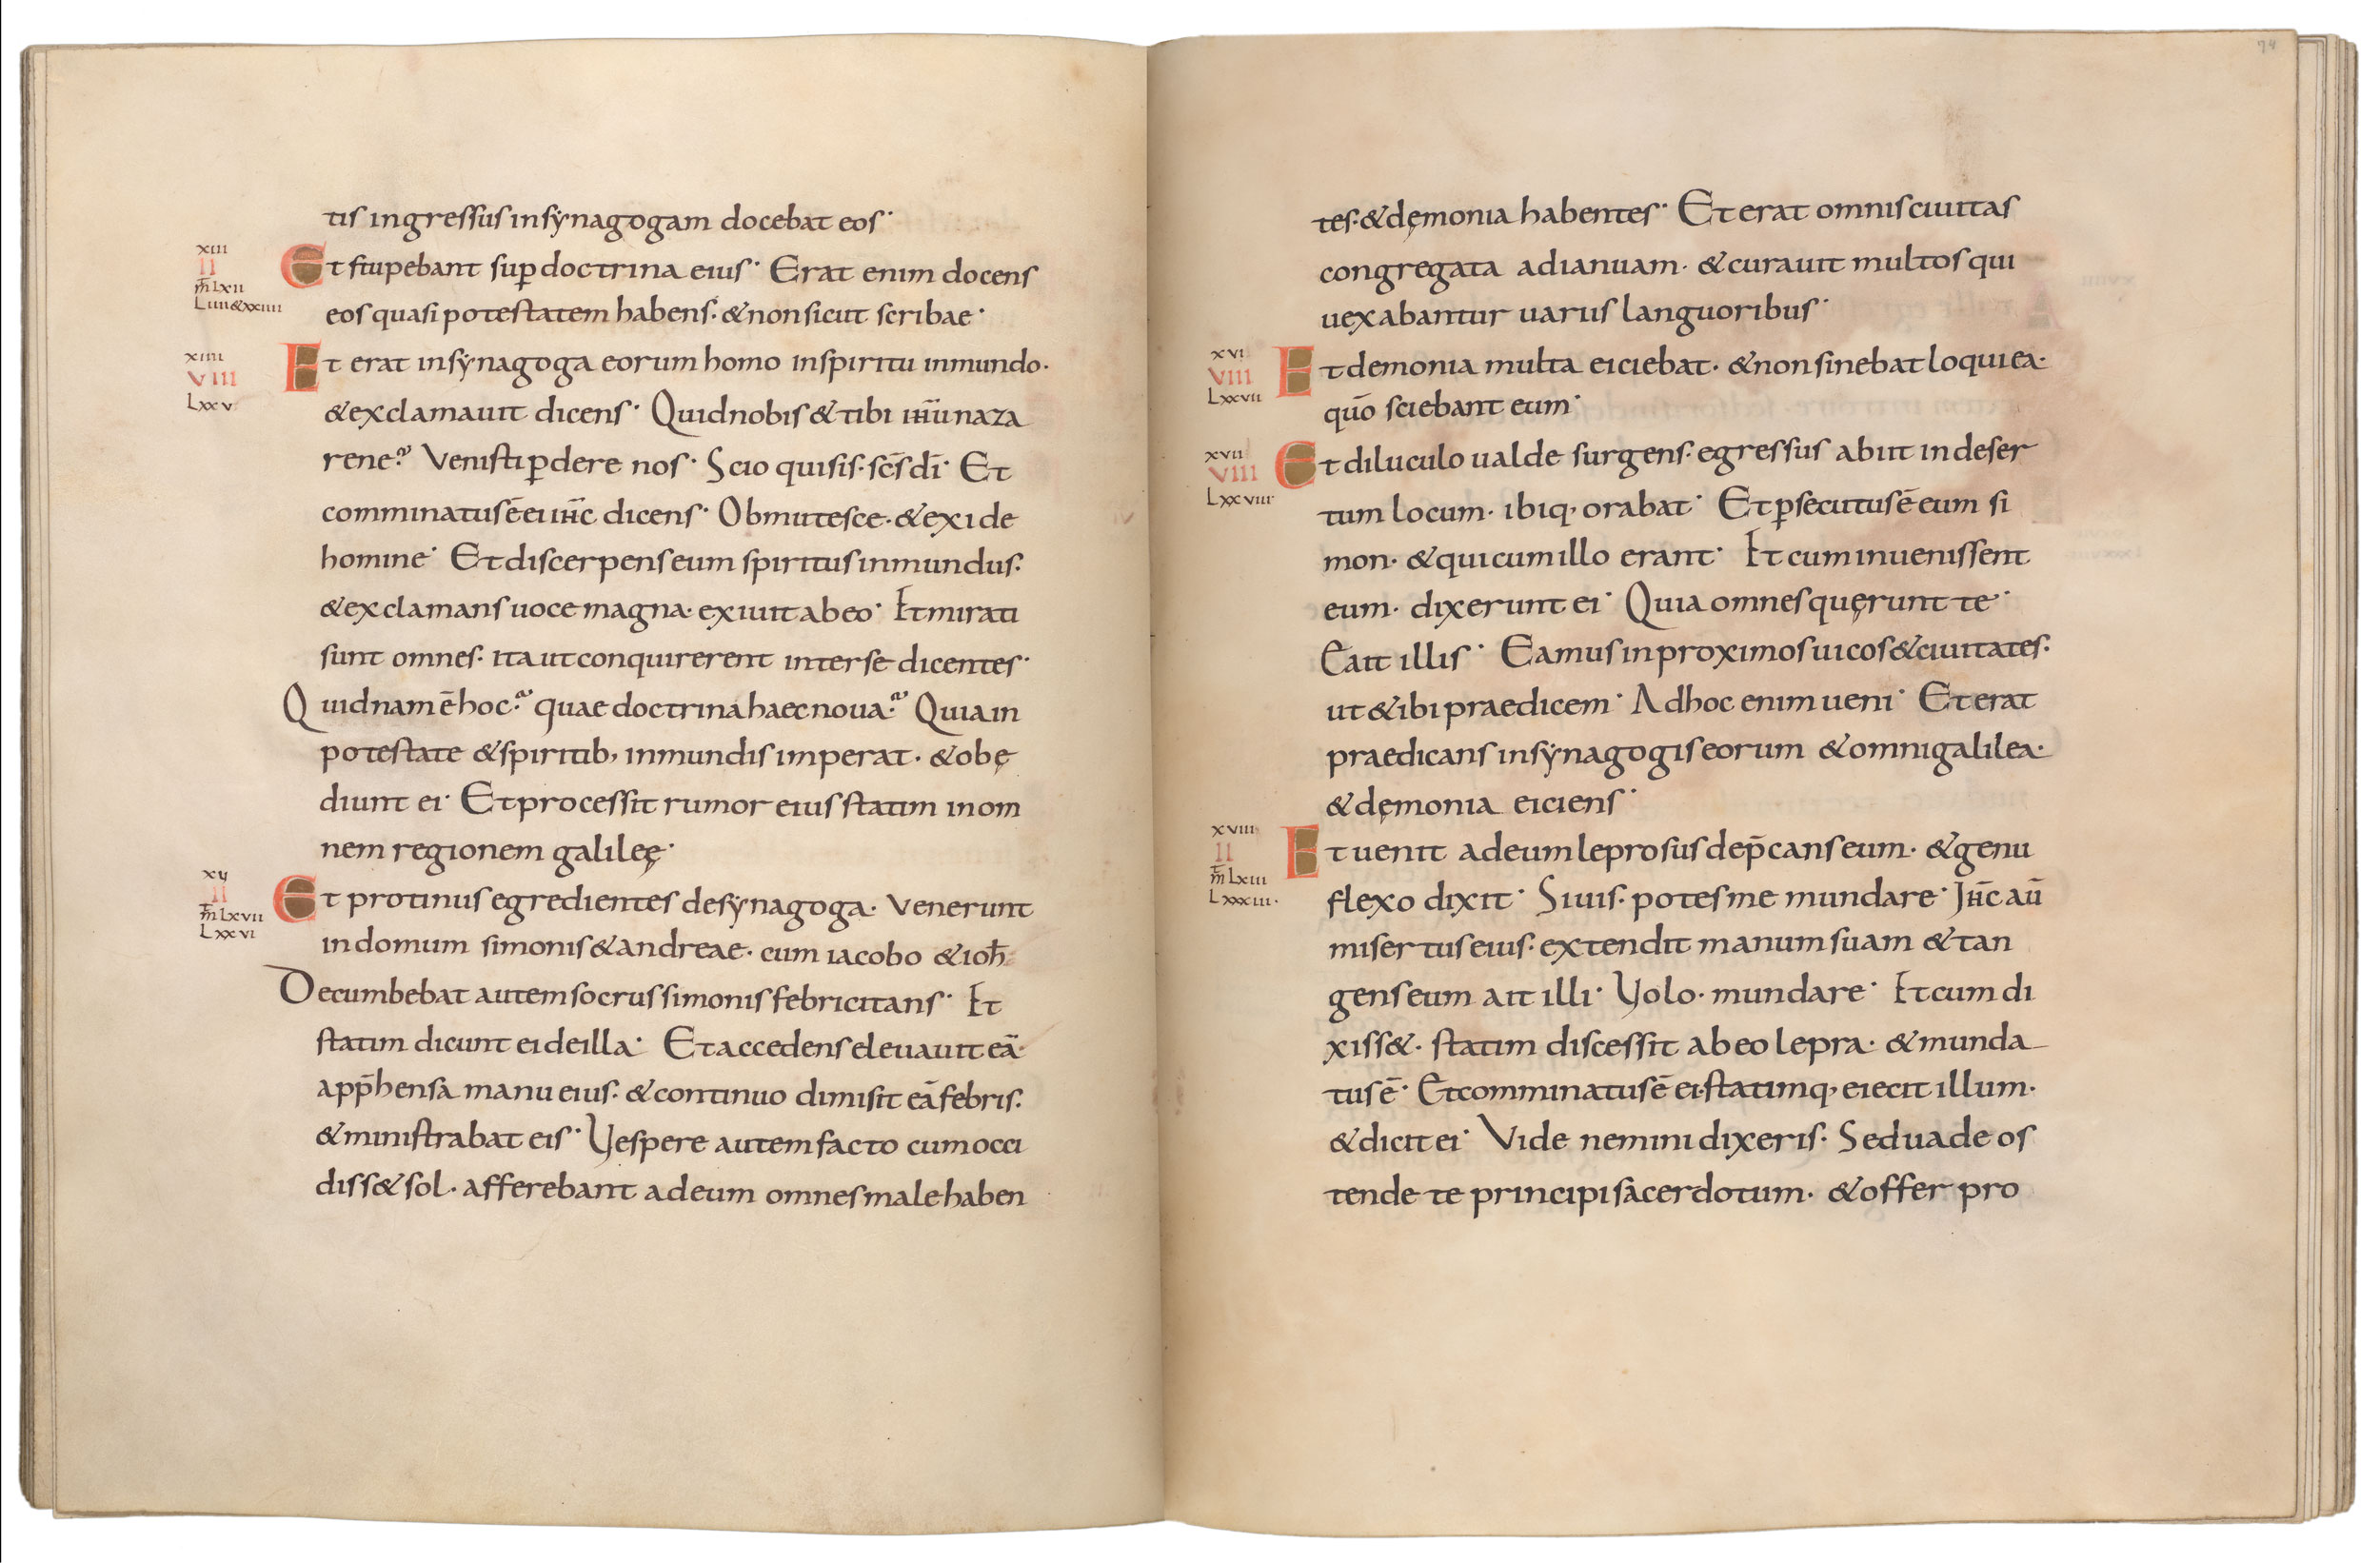 tis ingressus in synagogam docebat eos·
xiii
II
m̄ Lxii
L iiii & xxiiii
Et stupebant sup̲ doctrina eius· Erat enim docens
eos quasi potestatem habens· & non sicut scribae·
xiiii
VIII
Lxxv
Et erat in synagoga eorum homo in spiritu inmundo·
& exclamauit dicens· Quid nobis & tibi ihu̅ naza
rene? Venisti ꝑdere nos· Scio qui sis· sc̅s di̅· Et
comminatus e̅ ei ihc̅ dicens· Obmutesce· & exi de
homine· Et discerpens eum spiritus inmundus·
& exclamans uoce magna· exiuit ab eo· Et mirati
sunt omnes· ita ut conquirerent inter se dicentes·
Quidnam e̅ hoc? quae doctrina haec noua? Quia in
potestate & spiritib; inmundis imperat· & obę
diunt ei· Et processit rumor eius statim in om
nem regionem galileę·
xv
II
m̄ Lxvii
Lxxvi
Et protinus egredientes de synagoga· venerunt
in domum simonis & andreae· cum iacobo & ioh̅
Decumbebat autem socrus simonis febricitans· Et
statim dicunt ei de illa· Et accedens eleuauit ea̅·
app̅hensa manu eius· & continuo dimisit ea̅ febris·
& ministrabat eis· Vespere autem facto cum occi
diss& sol· afferebant ad eum omnes male haben
74
tes· & dęmonia habentes· Et erat omnis ciuitas
congregata ad ianuam· & curauit multos qui
uexabantur uariis languoribus·
xvi
VIII
Lxxvii
Et demonia multa eiciebat· & non sinebat loqui ea·
quo̅ sciebant eum·
xvii
VIII
Lxxviii
Et diluculo ualde surgens· egressus abiit in deser
tum locum· ibiq; orabat· Et ꝑsecutus e̅ eum si
mon· & qui cum illo erant· Et cum inuenissent
eum· dixerunt ei· Quia omnes quęrunt te·
Et ait illis· Eamus in proximos uicos & ciuitates·
ut & ibi praedicem· Ad hoc enim ueni· Et erat
praedicans in synagogis eorum & omni galilea·
& dęmonia eiciens·
xviii
II
m̄ Lxiii
Lxxxiii·
Et uenit ad eum leprosus dep̅cans eum· & genu
flexo dixit· Si uis· potes me mundare· Ihc̅ au̅
misertus eius· extendit manum suam & tan
gens eum ait illi· Volo· mundare· Et cum di
xiss&· statim discessit ab eo lepra· & munda
tus e̅· Et comminatus e̅ ei· statimq; eiecit illum·
& dicit ei· Vide nemini dixeris· Sed uade os
tende te principi sacerdotum· & offer pro